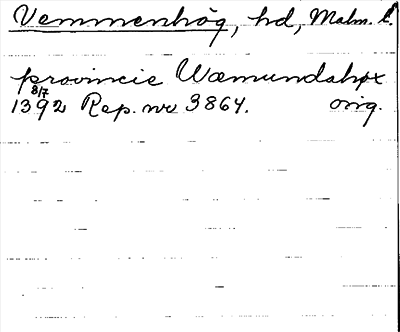 Vemmenhög, hd, Malm. l.
provincie Wæmundshøx
8/7
1392 Rep. nr 3864. orig.